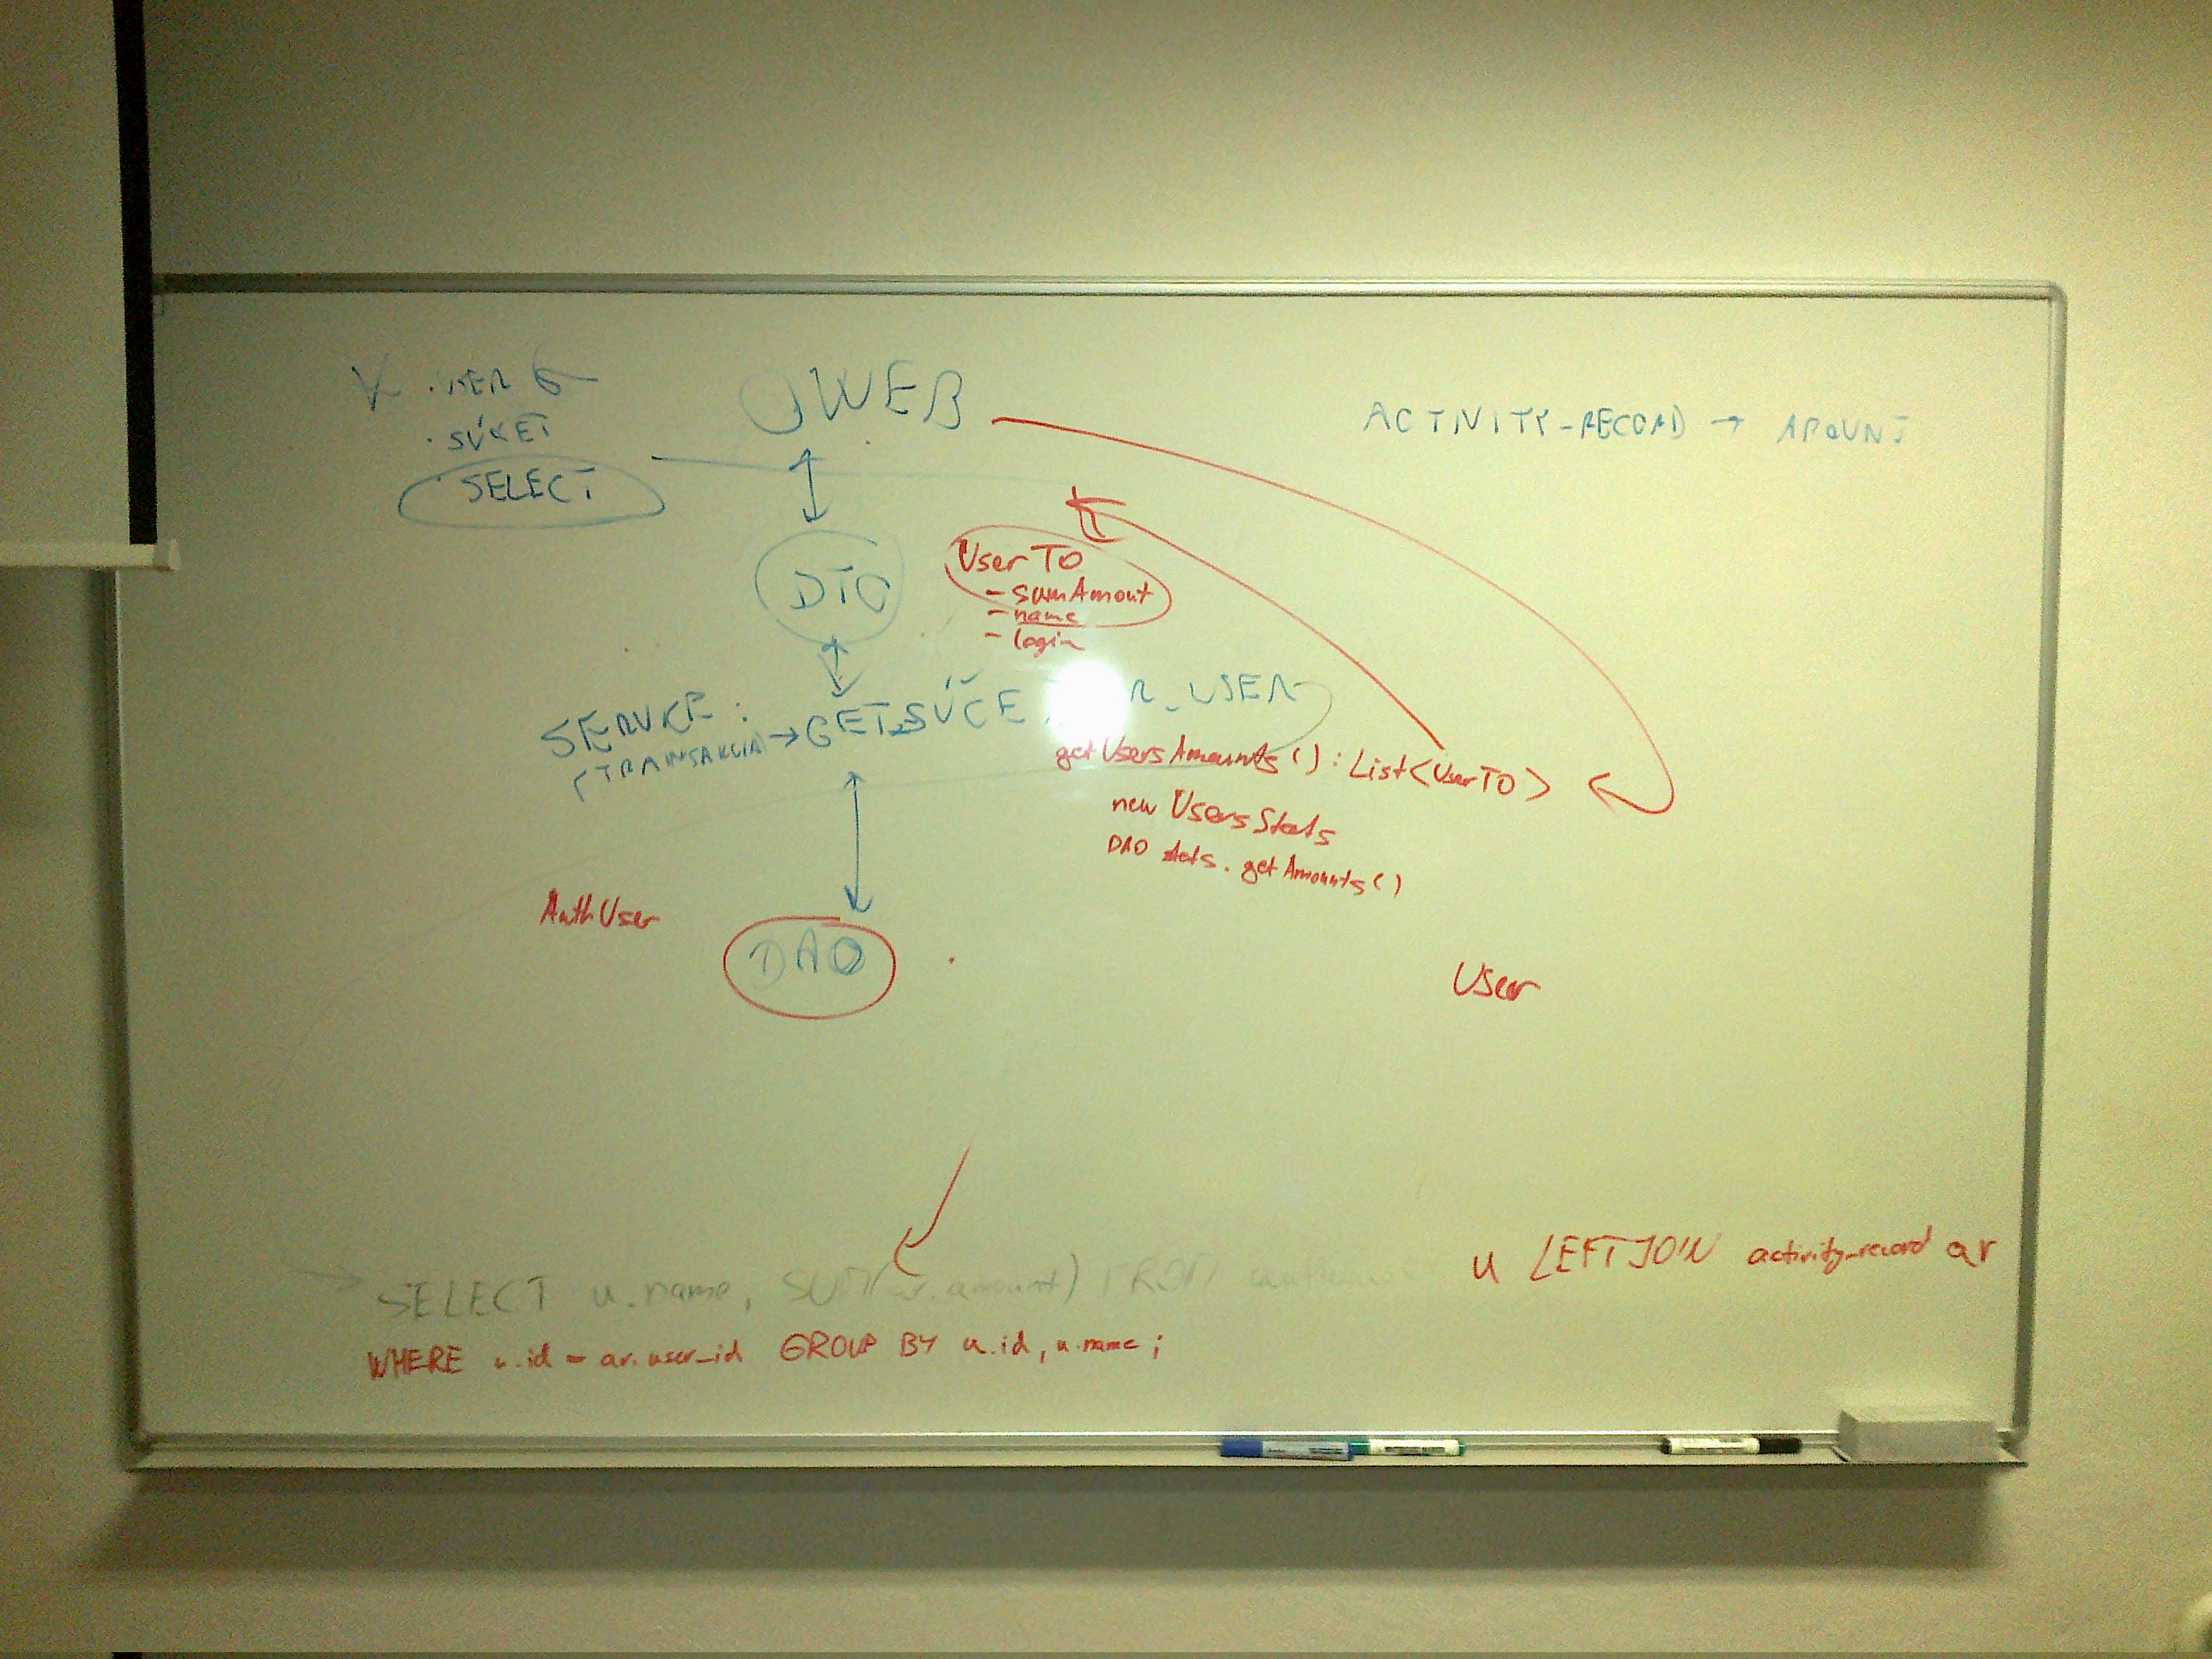 SELECT
WEB
ACTIVITY-RECORD →
DTO
UserTO
- sumAmout
- name
- login
→ GET SÚČE R_USER
getUsersAmounts() : List<UserTO>
new UsersStats
DAO stats.getAmounts()
AuthUser
DAO
User
SELECT u.name, SUM(ar.amount) FROM
u LEFT JOIN activity_record ar
WHERE u.id = ar.user_id GROUP BY u.id, u.name;